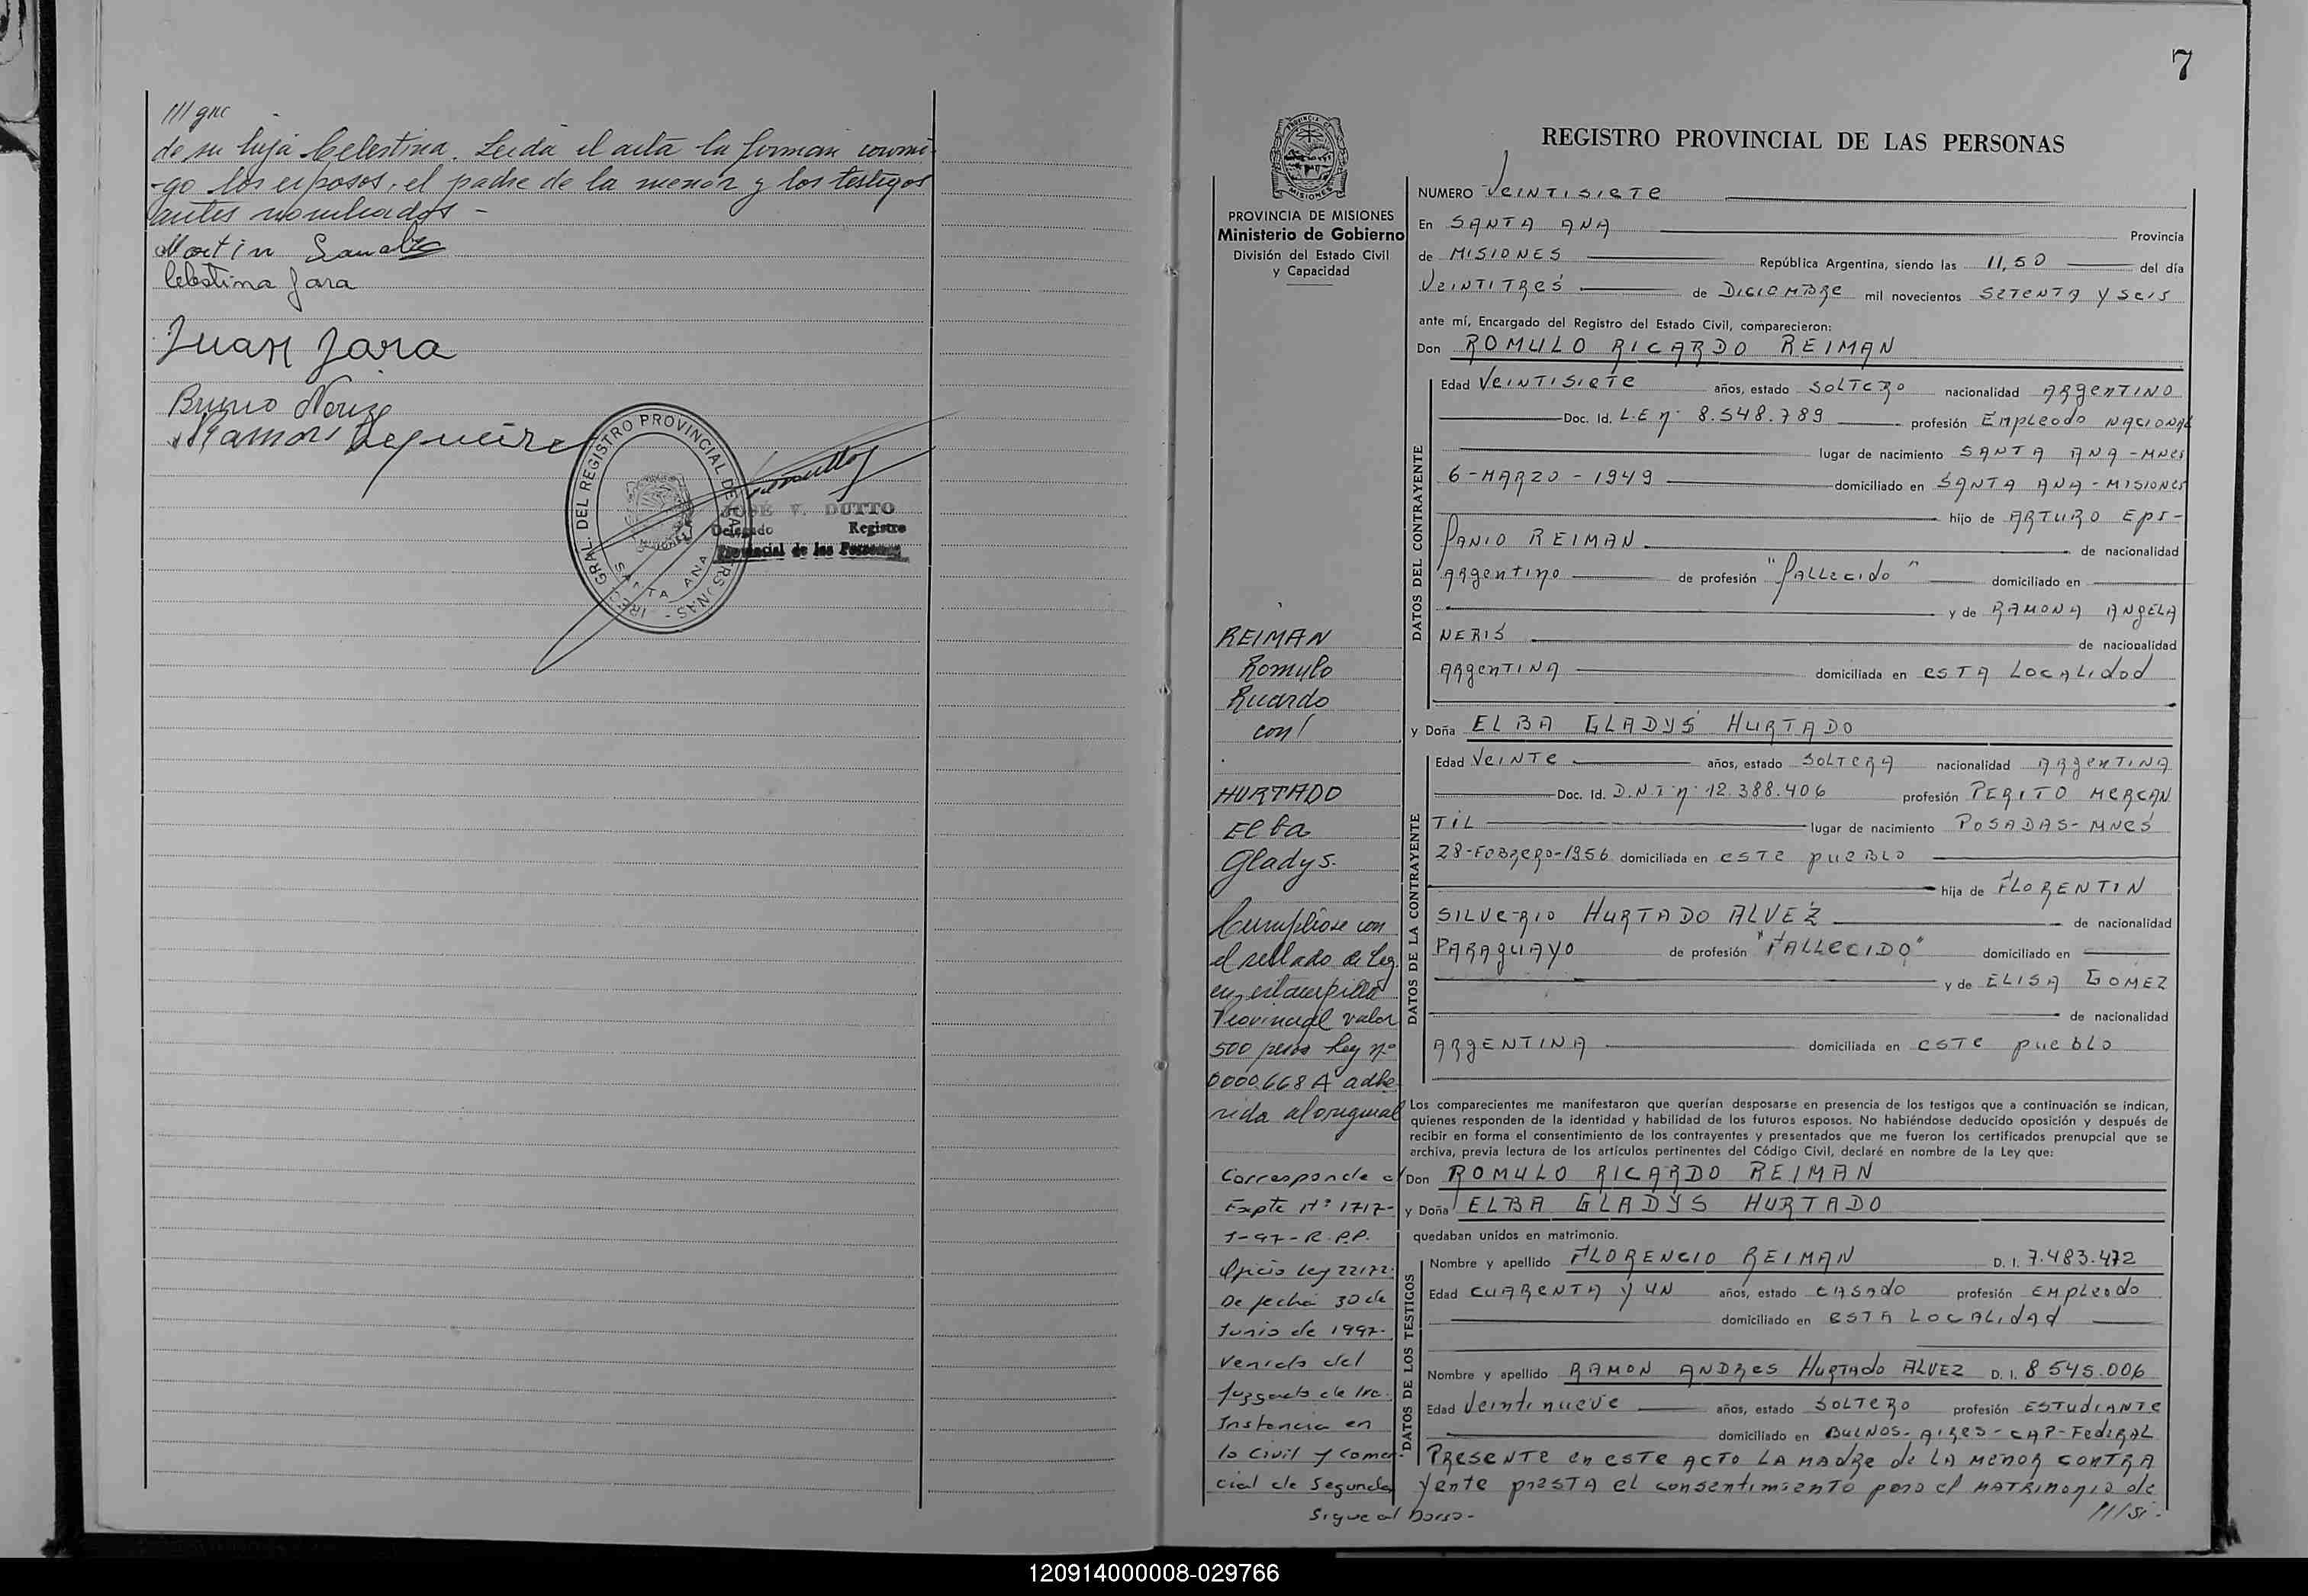 /// que
de su hija Celestina. Leida el acta la firman conmi-
-go los esposos, el padre de la menor y los testigos
antes nombrados -
Martin
Celestina Jara
Juan Jara
Bruno
Ramon
GRAL. DEL REGISTRO PROVINCIAL DE
SANTA ANA
JOSE V. DUTTO
Delegado Registro
Provincial de las Personas
7
REGISTRO PROVINCIAL DE LAS PERSONAS
PROVINCIA DE MISIONES
Ministerio de Gobierno
División del Estado Civil
y Capacidad
REIMAN
Romulo
Ricardo
con/
HURTADO
Elba
Gladys.
Cumpliose con
el sellado de Ley
en estampilla
Provincial valor
500 pesos Ley nº
0000.668 A adhe
rida al original
Corresponde al
Expte Nº 1717-
1-97-R.P.P.
Oficio Ley 22172.
De fecha 30 de
Junio de 1997-
Venido del
Juzgado de 1ra.
Instancia en
lo Civil y Comer-
cial de Segunda
Sigue al Dorso-
NUMERO VEINTISIETE
En SANTA ANA Provincia
de MISIONES República Argentina, siendo las 11,50 del día
VEINTITRES de DICIEMBRE mil novecientos SETENTA Y SEIS
ante mí, Encargado del Registro del Estado Civil, comparecieron:
Don ROMULO RICARDO REIMAN
DATOS DEL CONTRAYENTE
Edad VEINTISIETE años, estado SOLTERO nacionalidad ARGENTINO
Doc. Id. L.E nº 8.548.789 profesión Empleado NACIONAL
lugar de nacimiento SANTA ANA - MNES
6-MARZO-1949 domiciliado en SANTA ANA - MISIONES
hijo de ARTURO EPI-
FANIO REIMAN de nacionalidad
ARGENTINO de profesión "FALLECIDO" domiciliado en
y de RAMONA ANGELA
NERIS de nacionalidad
ARGENTINA domiciliada en ESTA LOCALIDAD
y Doña ELBA GLADYS HURTADO
DATOS DE LA CONTRAYENTE
Edad VEINTE años, estado SOLTERA nacionalidad ARGENTINA
Doc. Id. D.N.I nº 12.388.406 profesión PERITO MERCAN
TIL lugar de nacimiento POSADAS-MNES
28-FEBRERO-1956 domiciliada en ESTE PUEBLO
hija de FLORENTIN
SILVERIO HURTADO ALVEZ de nacionalidad
PARAGUAYO de profesión "FALLECIDO" domiciliado en
y de ELISA GOMEZ
de nacionalidad
ARGENTINA domiciliada en ESTE PUEBLO
Los comparecientes me manifestaron que querían desposarse en presencia de los testigos que a continuación se indican,
quienes responden de la identidad y habilidad de los futuros esposos. No habiéndose deducido oposición y después de
recibir en forma el consentimiento de los contrayentes y presentados que me fueron los certificados prenupcial que se
archiva, previa lectura de los artículos pertinentes del Código Civil, declaré en nombre de la Ley que:
Don ROMULO RICARDO REIMAN
y Doña ELBA GLADYS HURTADO
quedaban unidos en matrimonio.
DATOS DE LOS TESTIGOS
Nombre y apellido FLORENCIO REIMAN D. I. 7.483.472
Edad CUARENTA Y UN años, estado CASADO profesión EMPLEADO
domiciliado en ESTA LOCALIDAD
Nombre y apellido RAMON ANDRES HURTADO ALVEZ D. I. 8545.006
Edad Veintinueve años, estado SOLTERO profesión ESTUDIANTE
domiciliado en BUENOS-AIRES-CAP-FEDERAL
PRESENTE en ESTE ACTO LA MADRE de LA MENOR CONTRA
yente presta el consentimiento para el MATRIMONIO de
///si-
120914000008-029766